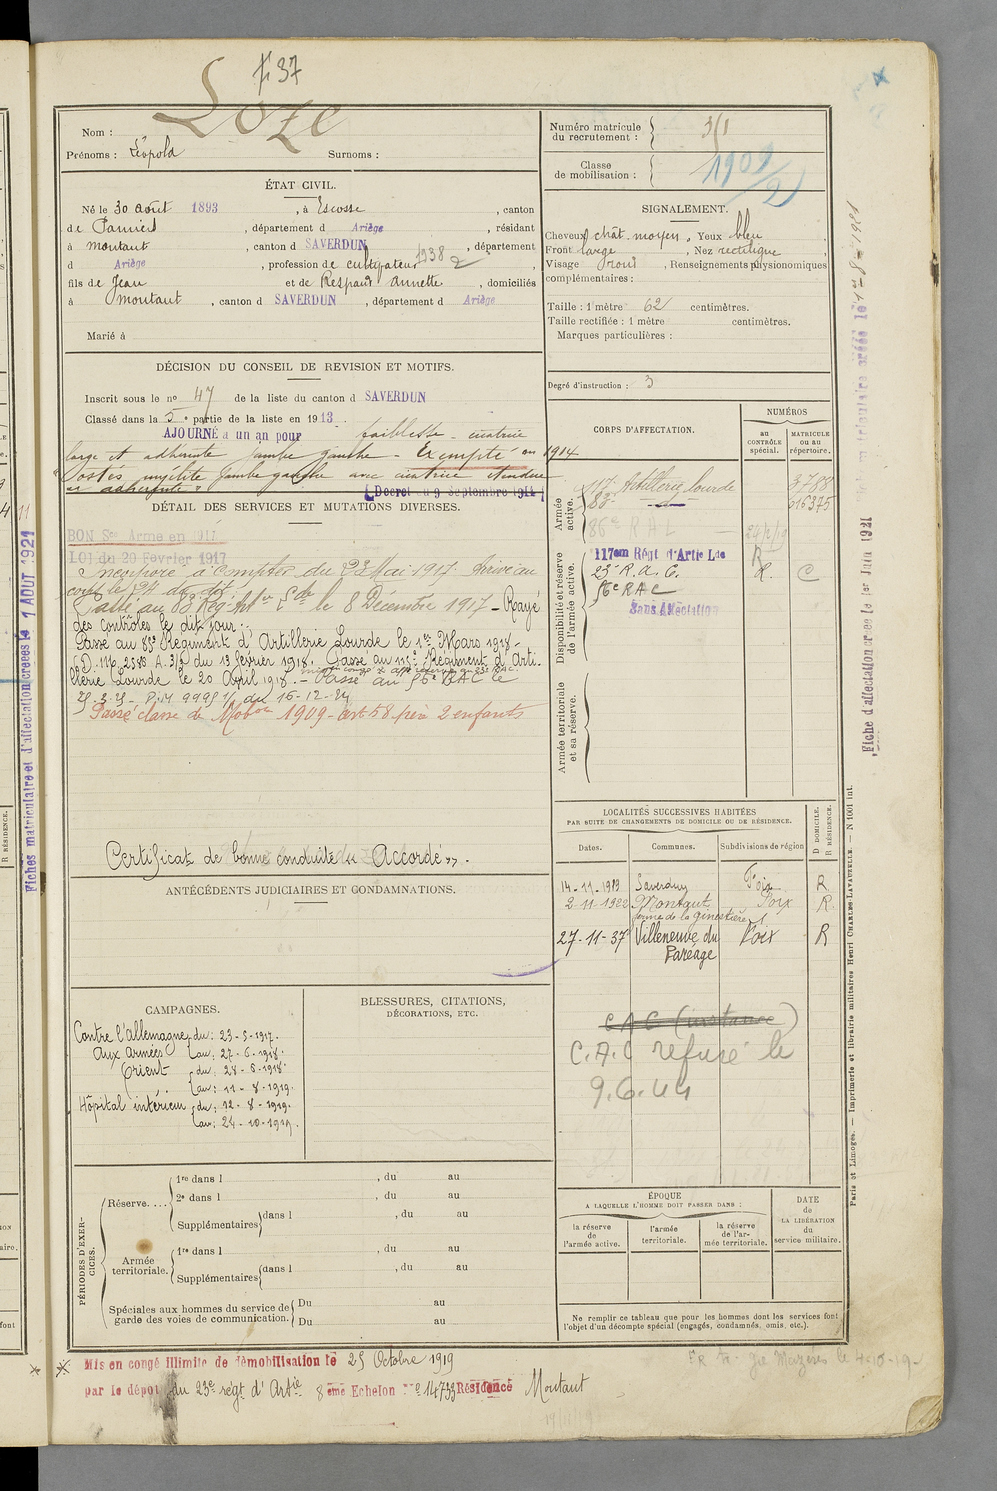 F 37
Nom : Loze
Prénoms : Léopold Surnoms :
Numéro matricule du recrutement :
Classe de mobilisation : 1909/2
ÉTAT CIVIL.
Né le 30 août 1893, à Escosse, canton
de Pamiers, département d Ariège, résidant
à Montaut, canton d SAVERDUN, département
d Ariège, profession de cultivateur 1938
fils de Jean et de Respaud Annette, domiciliés
à Montaut, canton d SAVERDUN, département d Ariège
Marié à
SIGNALEMENT.
Cheveux chât. moyen. Yeux bleu
Front large, Nez rectiligne
Visage rond, Renseignements physionomiques
complémentaires :
Taille : 1 mètre 62 centimètres.
Taille rectifiée : 1 mètre centimètres.
Marques particulières :
Degré d'instruction : 3
DÉCISION DU CONSEIL DE REVISION ET MOTIFS.
Inscrit sous le no 47 de la liste du canton d SAVERDUN
Classé dans la 5e partie de la liste en 1913
AJOURNÉ à un an pour faiblesse - cicatrice
large et adhérente jambe gauche - Exempté en 1914
Postes myélite jambe gauche avec cicatrice étendue
et adhérente
(Décret du 9 Septembre 1914)
DÉTAIL DES SERVICES ET MUTATIONS DIVERSES.
BON Sce Armé en 1917
LOI du 20 Février 1917
Incorporé à compter du 23 Mai 1917. Arrivé au
corps le dit.
Passé au 83 Rég. Art le 8 Décembre 1917 - Rayé
des contrôles le dit jour.
Passé au 85e Régiment d'Artillerie Lourde le 1er Mars 1918 -
du 13 février 1918. Passé au 115e Régiment d'Arti-
llerie Lourde le 20 Avril 1918. - Passé au 56e RAC le
D.M 9995 1/1 du 16-12-24
Passé classe de Mobon 1909 - art 58 père 2 enfants
Certificat de bonne conduite "Accordé".
CORPS D'AFFECTATION.
NUMÉROS
au CONTRÔLE spécial.
MATRICULE ou au répertoire.
Armée active.
117e Artillerie Lourde 3788
86e R A L
Disponibilité et réserve de l'armée active.
117em Régt d'Artie Lde R
23e R. a. C. R. C
56e R A C
Sans Affectation
Armée territoriale et sa réserve.
LOCALITÉS SUCCESSIVES HABITÉES
PAR SUITE DE CHANGEMENTS DE DOMICILE OU DE RÉSIDENCE.
Dates. Communes. Subdivisions de région
D DOMICILE. R RÉSIDENCE.
14-11-1919 Saverdun Foix R
2-11-1922 Montaut Foix R.
ferme de la ginestière
27-11-37 Villeneuve du Paréage Foix R
C A C (instance)
C.A.C refusé le
9.6.44
ANTÉCÉDENTS JUDICIAIRES ET CONDAMNATIONS.
CAMPAGNES.
Contre l'Allemagne du : 23-5-1917.
Aux armées au : 27-6-1918.
Orient du : 28-6-1918
au : 11-8-1919.
Hôpital intérieur du : 12-8-1919.
au : 24-10-1919.
BLESSURES, CITATIONS,
DÉCORATIONS, ETC.
PÉRIODES D'EXERCICES.
Réserve....
1re dans l , du au
2e dans l , du au
Supplémentaires dans l , du au
Armée territoriale.
1re dans l , du au
Supplémentaires dans l , du au
Spéciales aux hommes du service de
garde des voies de communication.
Du au
Du au
ÉPOQUE
A LAQUELLE L'HOMME DOIT PASSER DANS :
la réserve de l'armée active.
l'armée territoriale.
la réserve de l'armée territoriale.
DATE de LA LIBÉRATION du service militaire.
Ne remplir ce tableau que pour les hommes dont les services font
l'objet d'un décompte spécial (engagés, condamnés, omis, etc.).
Mis en congé illimité de démobilisation le 25 Octobre 1919
par le dépôt du 23e régt d'Artie 8eme Echelon No 14733 Résidence Montaut
Fiches matriculaire et d'affectation créées le 1 AOUT 1921
Fiche d'affectation créée le 1er Juin 1931
Paris et Limoges. — Imprimerie et librairie militaires Henri CHARLES-LAVAUZELLE. — N 1001 int.